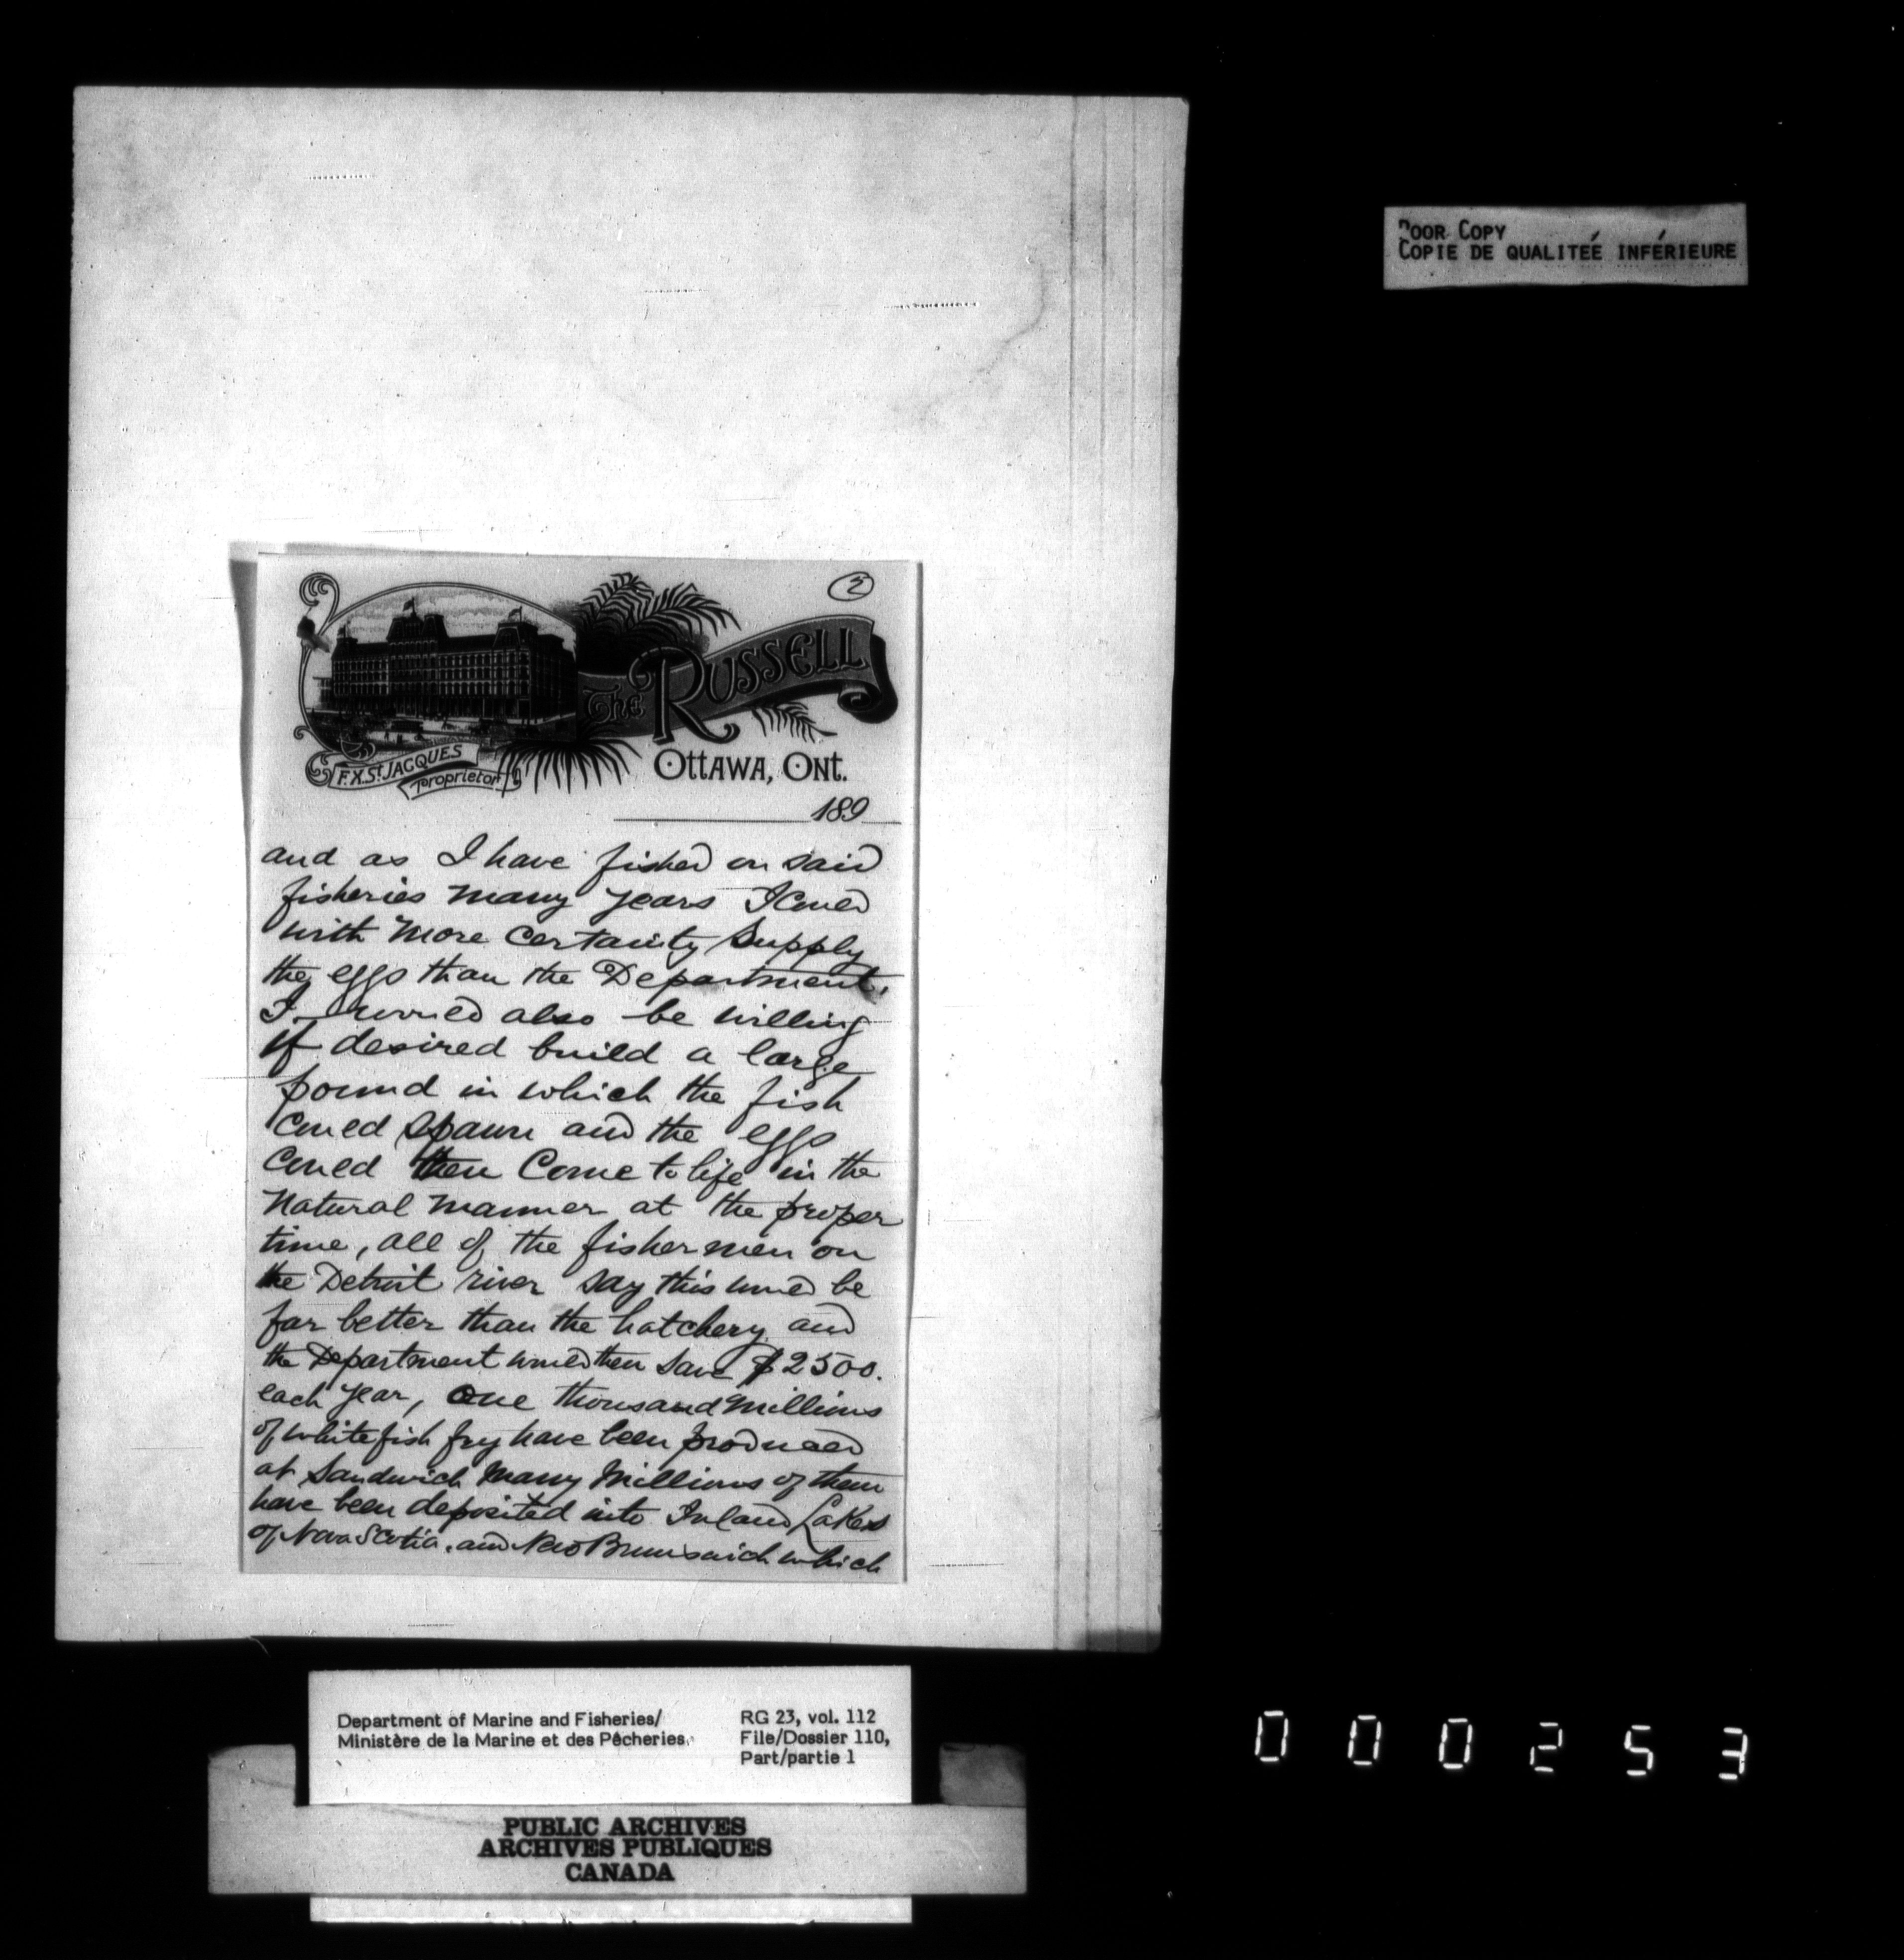 POOR COPY
COPIE DE QUALITEÉ INFÉRIEURE
2
The RUSSELL
F.X. St. JACQUES
Proprietor
OTTAWA, ONT.
189
and as I have fished on said
fisheries many years I could
with more certainty supply
the eggs than the Department.
I would also be willing
if desired build a large
pound in which the fish
could spawn and the eggs
could then Come to life in the
Natural manner at the proper
time, all of the fishermen on
the Detroit river say this would be
far better than the hatchery and
the Department would then save $2500.
each year, One thousand Millions
of whitefish fry have been produced
at Sandwich Many Millions of them
have been deposited into Inland Lakes
of Nova Scotia. and New Brunswick which
Department of Marine and Fisheries/
Ministère de la Marine et des Pêcheries
RG 23, vol. 112
File/Dossier 110,
Part/partie 1
PUBLIC ARCHIVES
ARCHIVES PUBLIQUES
CANADA
000253